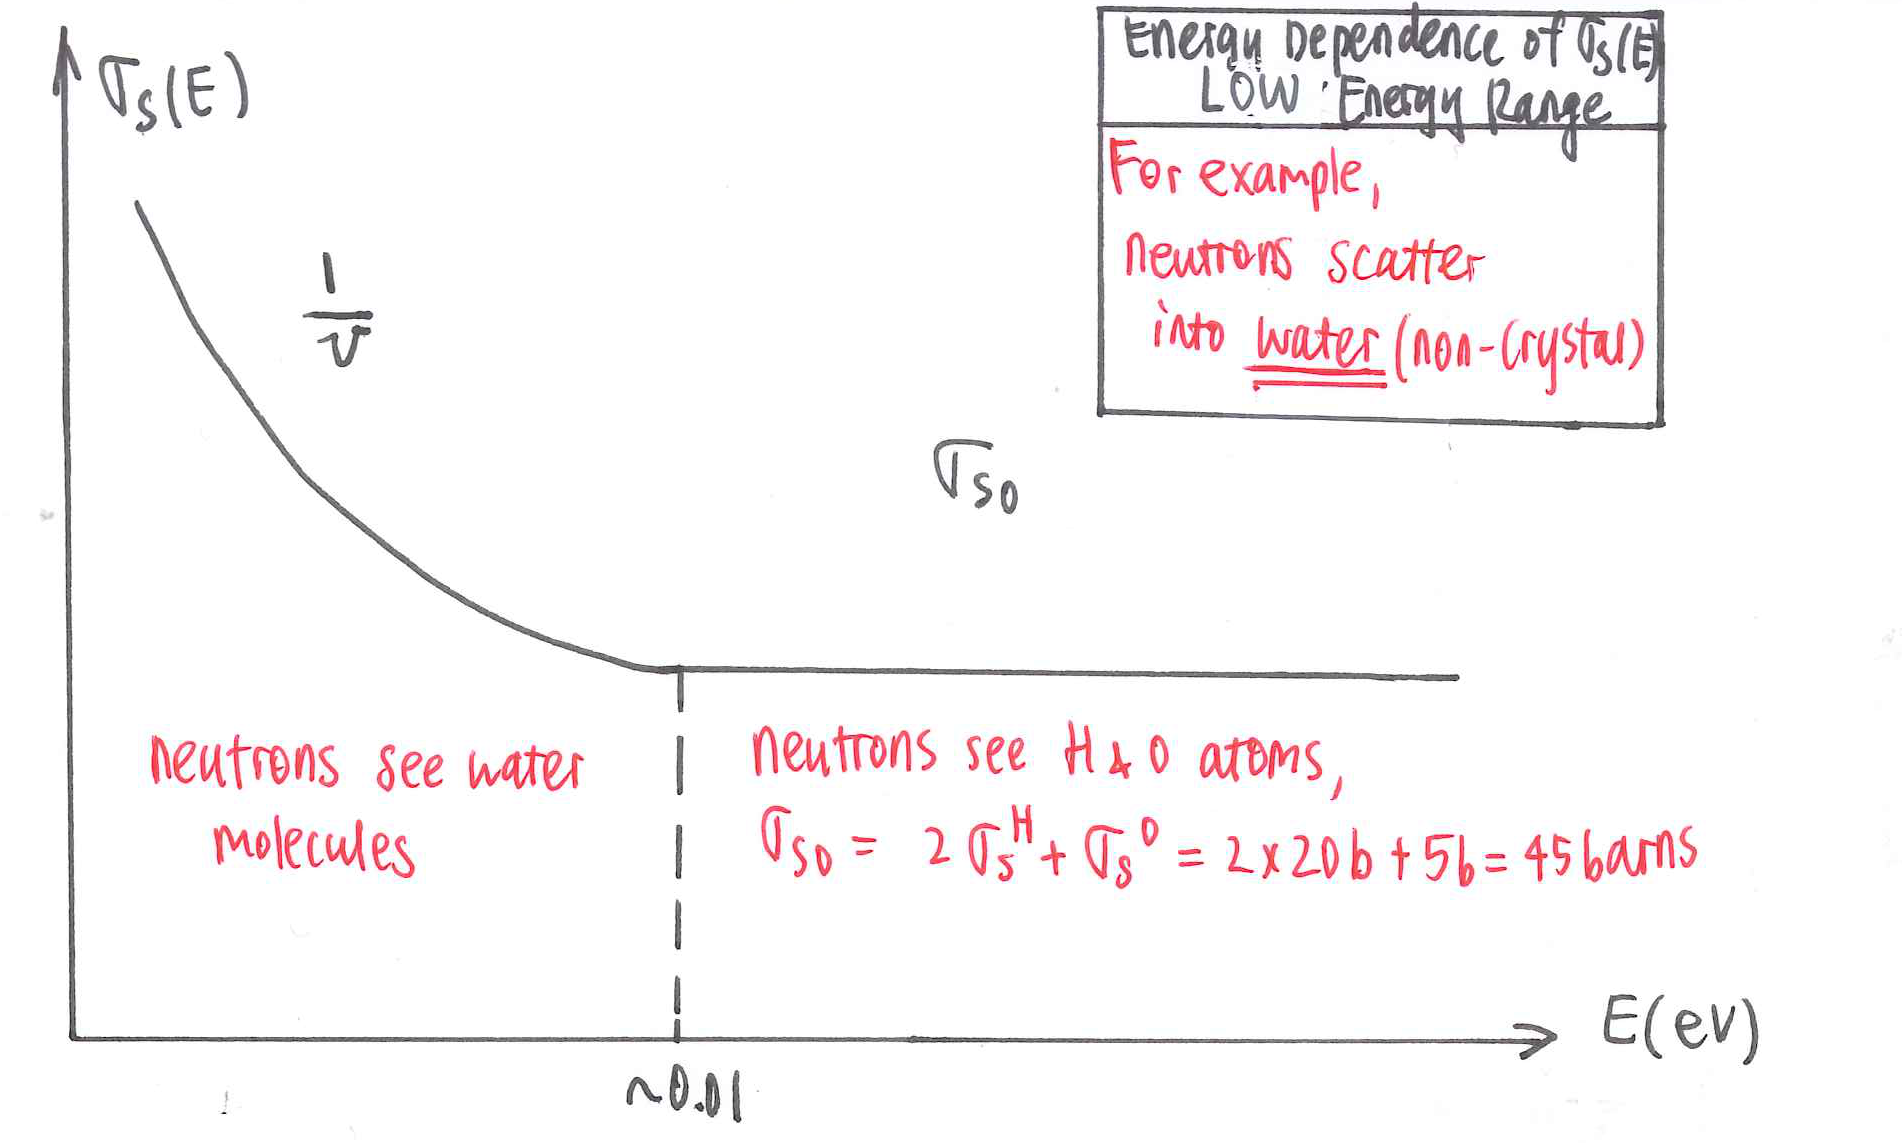 σs(E)
Energy Dependence of σs(E)
LOW Energy Range
For example,
neutrons scatter
into water (non-crystal)
1/v
σs0
neutrons see water
molecules
neutrons see H & O atoms,
σs0 = 2σs^H + σs^O = 2x20b + 5b = 45barns
E(eV)
~0.01